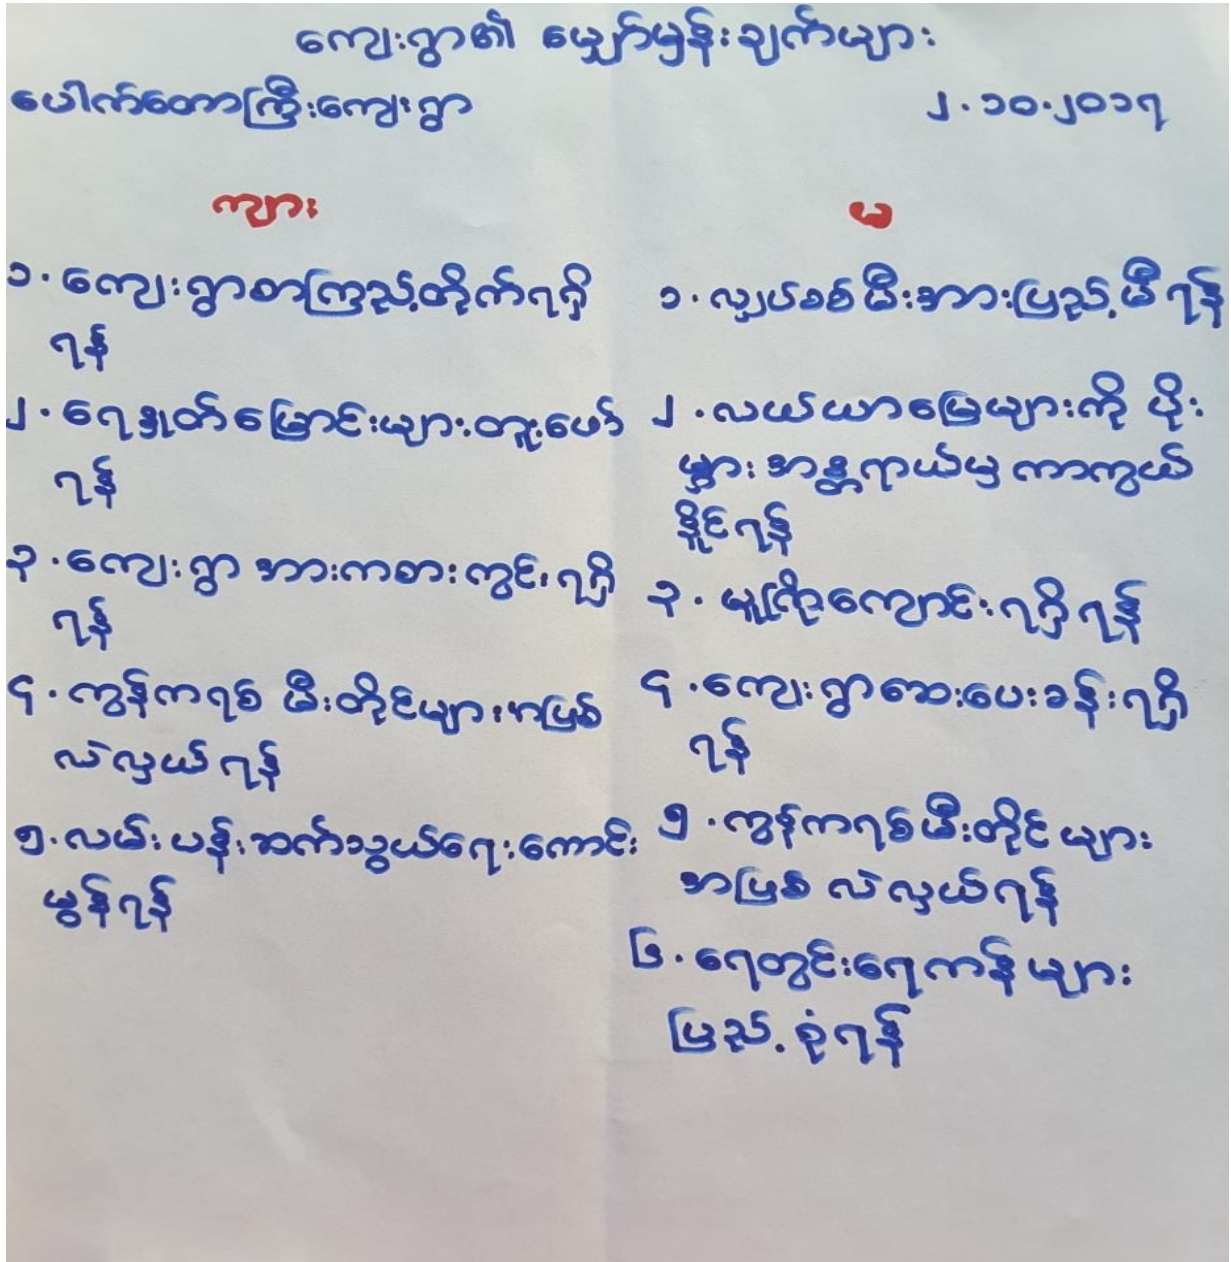 ကျေးရွာ၏ မျှော်မှန်းချက်များ
ပေါက်တောကြီးကျေးရွာ
၂.၁၀.၂၀၁၇
ကျား
၁.ကျေးရွာစာကြည့်တိုက်ရရှိ
ရန်
၂.ရေနှုတ်မြောင်းများတူးဖော်
ရန်
၃.ကျေးရွာ အားကစားကွင်းရရှိ
ရန်
၄.ကွန်ကရစ် မီးတိုင်များအဖြစ်
လဲလှယ်ရန်
၅.လမ်းပန်းဆက်သွယ်ရေးကောင်း
မွန်ရန်
မ
၁.လျှပ်စစ်မီးအားပြည့်မီရန်
၂.လယ်ယာမြေများကို ပိုး
မွှား အန္တရာယ်မှ ကာကွယ်
နိုင်ရန်
၃.မူကြိုကျောင်းရရှိရန်
၄.ကျေးရွာဆေးပေးခန်းရရှိ
ရန်
၅.ကွန်ကရစ်မီးတိုင်များ
အဖြစ် လဲလှယ်ရန်
၆.ရေတွင်းရေကန်များ
ပြည့်စုံရန်